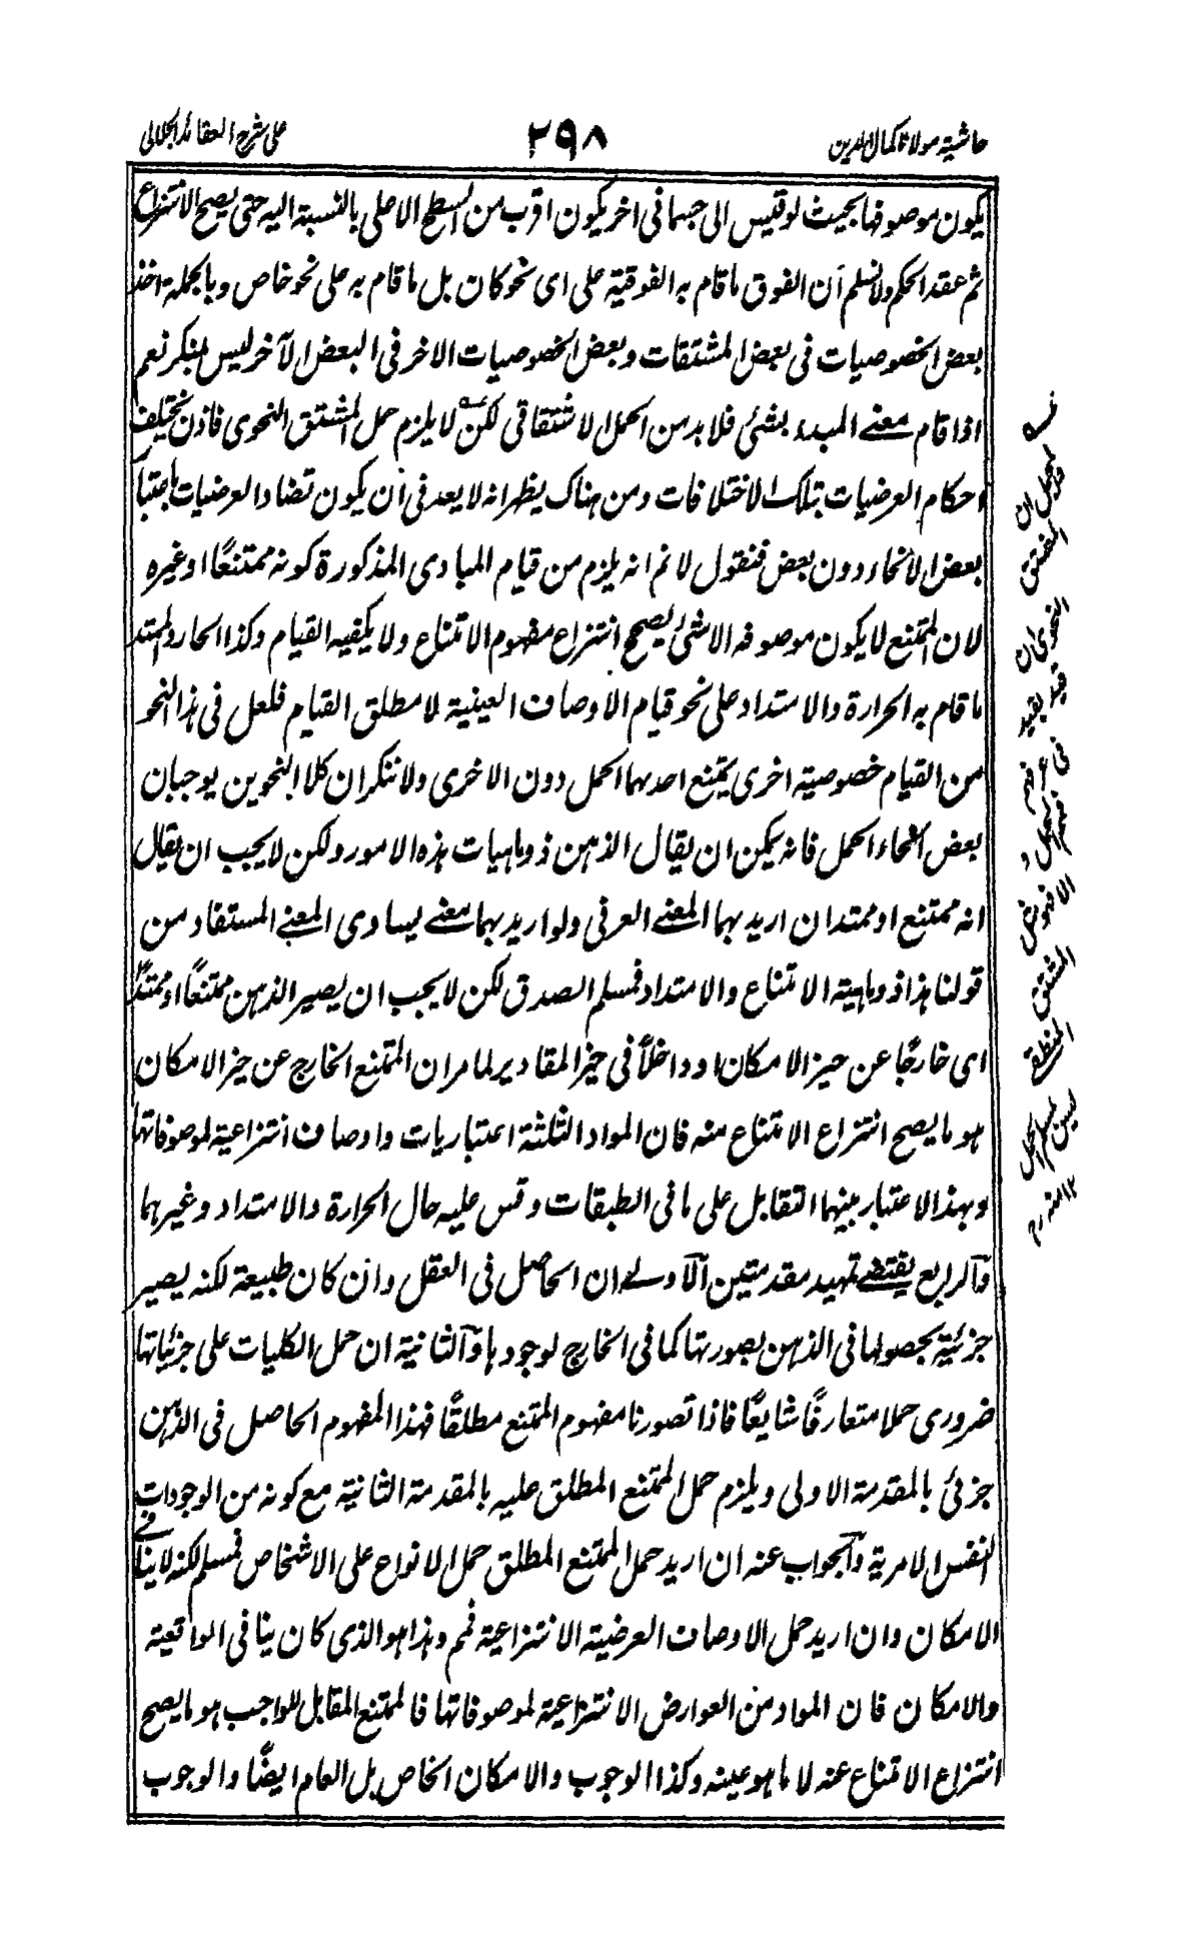 حاشية مولانا كمال الدين
٢٩٨
على شرح العقائد الجلالى
يكون موصوفها بحيث لو قيس الى جسما فى اخر يكون اقرب من السطح الاصلى بالنسبة اليه حتى يصح الانتزاع
ثم عقد الحكم ولا نسلم ان الفوق ما قام به الفوقية على اى نحو كان بل ما قام به على نحو خاص وبالجملة اخذ
بعض الخصوصيات فى بعض المشتقات وبعض الخصوصيات الاخر فى البعض الآخر ليس بمنكر نعم
اذا قام معنى المبدء بشئ فلا بد من الحمل الاشتقاقى لكن لا يلزم حمل المشتق النحوى فاذن تختلف
احكام العرضيات بتلك الاختلافات ومن هناك يظهر انه لا يعد فى ان يكون تضاد العرضيات باعتبار
بعض الانحاء دون بعض فنقول لا نم انه يلزم من قيام المبادى المذكورة كونه ممتنعًا او غيره
لان الممتنع لا يكون موصوفه الا شئ يصح انتزاع مفهوم الامتناع ولا يكفيه القيام وكذا الحار والممتد
ما قام به الحرارة والامتداد على نحو قيام الاوصاف العينية لا مطلق القيام فلعل فى هذا النحو
من القيام خصوصية اخرى يمتنع احدهما الحمل دون الاخرى ولا ننكر ان كلا النحوين يوجبان
بعض انحاء الحمل فانه يمكن ان يقال الذهن ذو ماهيات هذه الامور ولكن لا يجب ان يقال
انه ممتنع او ممتد ان اريد بهما المعنى العرفى ولو اريد بهما معنى يساوى المعنى المستفاد من
قولنا هذا ذو ماهية الامتناع والامتداد فمسلم الصدق لكن لا يجب ان يصير الذهن ممتنعًا او ممتدًا
اى خارجًا عن حيز الامكان او داخلاً فى حيز المقادير لما مر ان الممتنع الخارج عن حيز الامكان
هو ما يصح انتزاع الامتناع منه فان المواد الثلثة اعتباريات واوصاف انتزاعية لموصوفاتها
وبهذا الاعتبار بينهما التقابل على ما فى الطبقات وقس عليه حال الحرارة والامتداد وغيرهما
وآلرابع يقتضى تمهيد مقدمتين آلاولى ان الحاصل فى العقل وان كان طبيعة لكنه يصير
جزئية بحصولها فى الذهن بصورتها كما فى الخارج لوجودها وآلثانية ان حمل الكليات على جزئياتها
ضرورى حملا متعارفًا شايعًا فاذا تصورنا مفهوم الممتنع مطلقًا فهذا المفهوم الحاصل فى الذهن
جزئ بالمقدمة الاولى ويلزم حمل الممتنع المطلق عليه بالمقدمة الثانية مع كونه من الوجودات
النفس الامرية وآلجواب عنه ان اريد حمل الممتنع المطلق حمل الانواع على الاشخاص فمسلم لكنه لا ينافى
الامكان وان اريد حمل الاوصاف العرضية الانتزاعية فمم وهذا هو الذى كان ينافى الواقعية
والامكان فان المواد من العوارض الانتزاعية لموصوفاتها فالممتنع المقابل للواجب هو ما يصح
انتزاع الامتناع عنه لا ما هو عينه وكذا الوجوب والامكان الخاص بل العام ايضًا والوجوب
المشتق
النحوى ان
قيد بقيد
المشتق
المطلق
ليس مسلم الحمل
١٢ منه رح